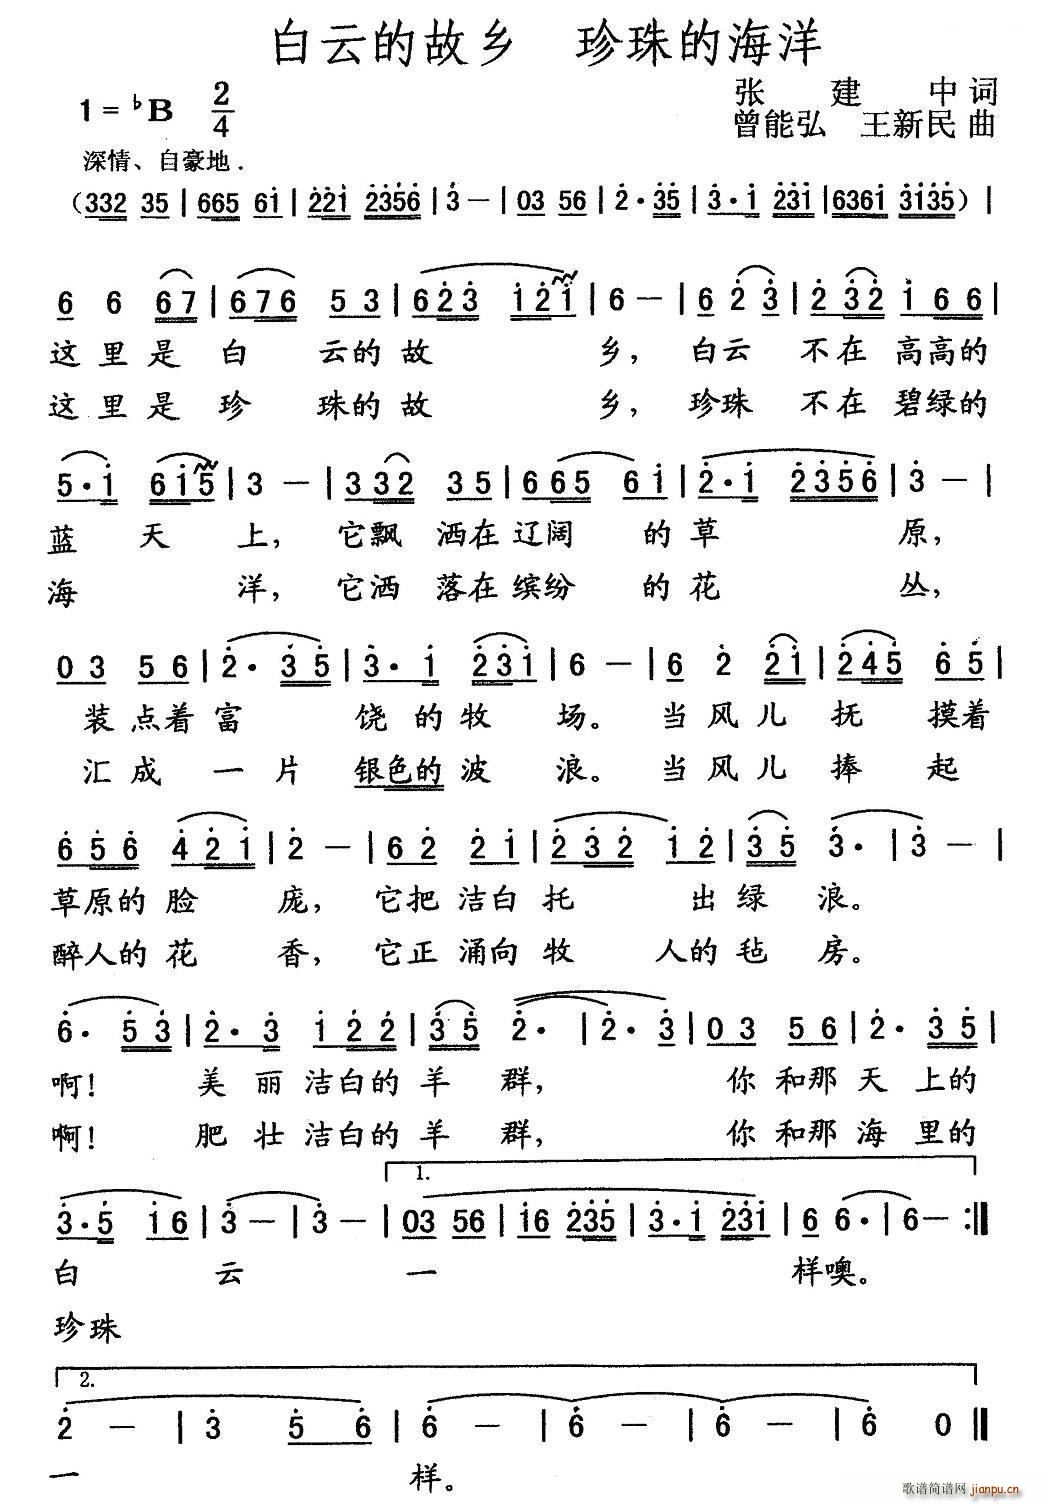 白云的故乡 珍珠的海洋
1=♭B 2/4
张建中词
曾能弘 王新民曲
深情、自豪地.
(332 35 | 665 61 | 221 2356 | 3 — | 03 56 | 2·35 | 3·1 231 | 6361 3135) |
6 6 67 | 676 53 | 623 121 | 6 — | 6 2 3 | 232 166 |
这里是白云的故乡，白云不在高高的
这里是珍珠的故乡，珍珠不在碧绿的
5·1 615 | 3 — | 332 35 | 665 61 | 2·1 2356 | 3 — |
蓝天上，它飘洒在辽阔的草原，
海洋，它洒落在缤纷的花丛，
03 56 | 2·35 | 3·1 231 | 6 — | 6 2 21 | 245 65 |
装点着富饶的牧场。当风儿抚摸着
汇成一片银色的波浪。当风儿捧起
656 421 | 2 — | 62 21 | 232 12 | 35 3· | 3 — |
草原的脸庞，它把洁白托出绿浪。
醉人的花香，它正涌向牧人的毡房。
6·53 | 2·3 122 | 35 2· | 2·3 | 03 56 | 2·35 |
啊！美丽洁白的羊群，你和那天上的
啊！肥壮洁白的羊群，你和那海里的
1.
3·5 16 | 3 — | 3 — | 03 56 | 16 235 | 3·1 231 | 6 6· | 6 — :||
白云一样噢。
珍珠
2.
2 — | 3 56 | 6 — | 6 — | 6 0 ||
一样。
歌谱简谱网 jianpu.cn